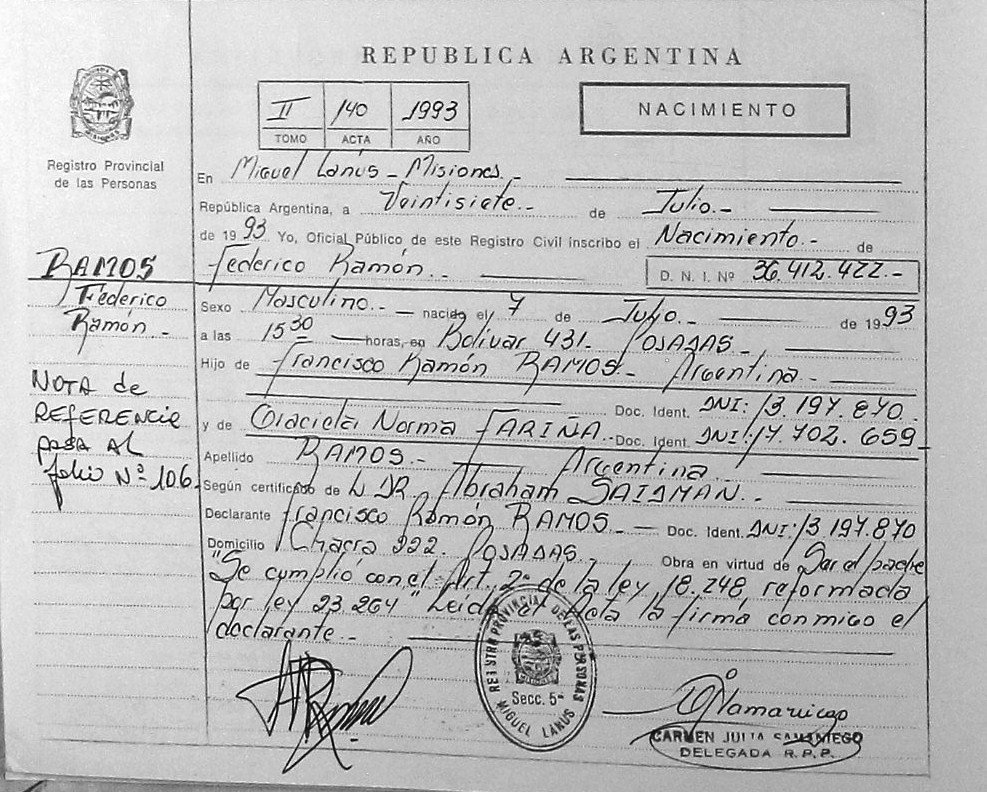 REPUBLICA ARGENTINA
II 140 1993
TOMO ACTA AÑO
NACIMIENTO
Registro Provincial
de las Personas
En Miguel Lanús - Misiones.-
República Argentina, a Veintisiete.- de Julio.-
de 1993 Yo, Oficial Público de este Registro Civil inscribo el Nacimiento.- de
Federico Ramón.- D. N. I. Nº 36.412.422.-
RAMOS
Federico
Ramón.-
Sexo Masculino.- nacido el 7 de Julio.- de 1993
a las 15 30 horas, en Bolívar 431- POSADAS.-
Hijo de Francisco Ramón RAMOS.- Argentina.-
Doc. Ident. DNI: 13.197.870.
y de Graciela Norma FARIÑA.- Doc. Ident. DNI: 17.702.659
Apellido RAMOS.- Argentina.
Según certificado de L. DR. Abraham SAIDMAN.-
Declarante Francisco Ramón RAMOS.- Doc. Ident. DNI: 13.197.870
Domicilio Chacra 222. POSADAS. Obra en virtud de Ser el padre
"Se cumplió con el Art. 2º de la ley 18.248, reformada
por ley 23.264" Leída el Acta la firma conmigo el
declarante.-
NOTA de
REFERENCIE
pasa AL
folio Nº 106.
REGISTRO PROVINCIAL DE LAS PERSONAS
Secc. 5ª
MIGUEL LANUS
CARMEN JULIA SAMANIEGO
DELEGADA R. P. P.